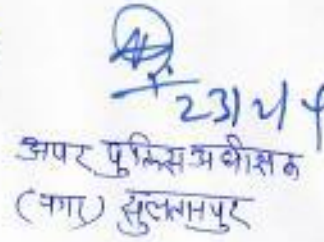 23/2/
अपर पुलिस अधीक्षक
(नगर) सुलतानपुर